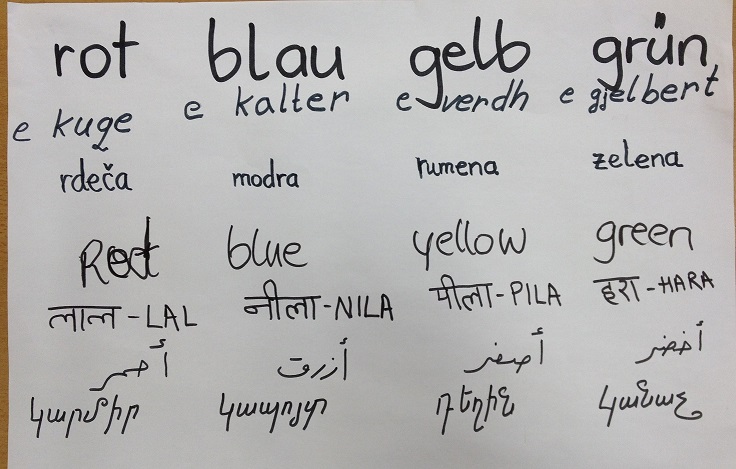 rot blau gelb grün
e kuqe e kalter e verdh e gjelbert
rdeča modra rumena zelena
Red blue yellow green
लाल - LAL नीला - NILA पीला - PILA हरा - HARA
أحمر أزرق أصفر أخضر
կարմիր կապոյտ դեղին կանաչ